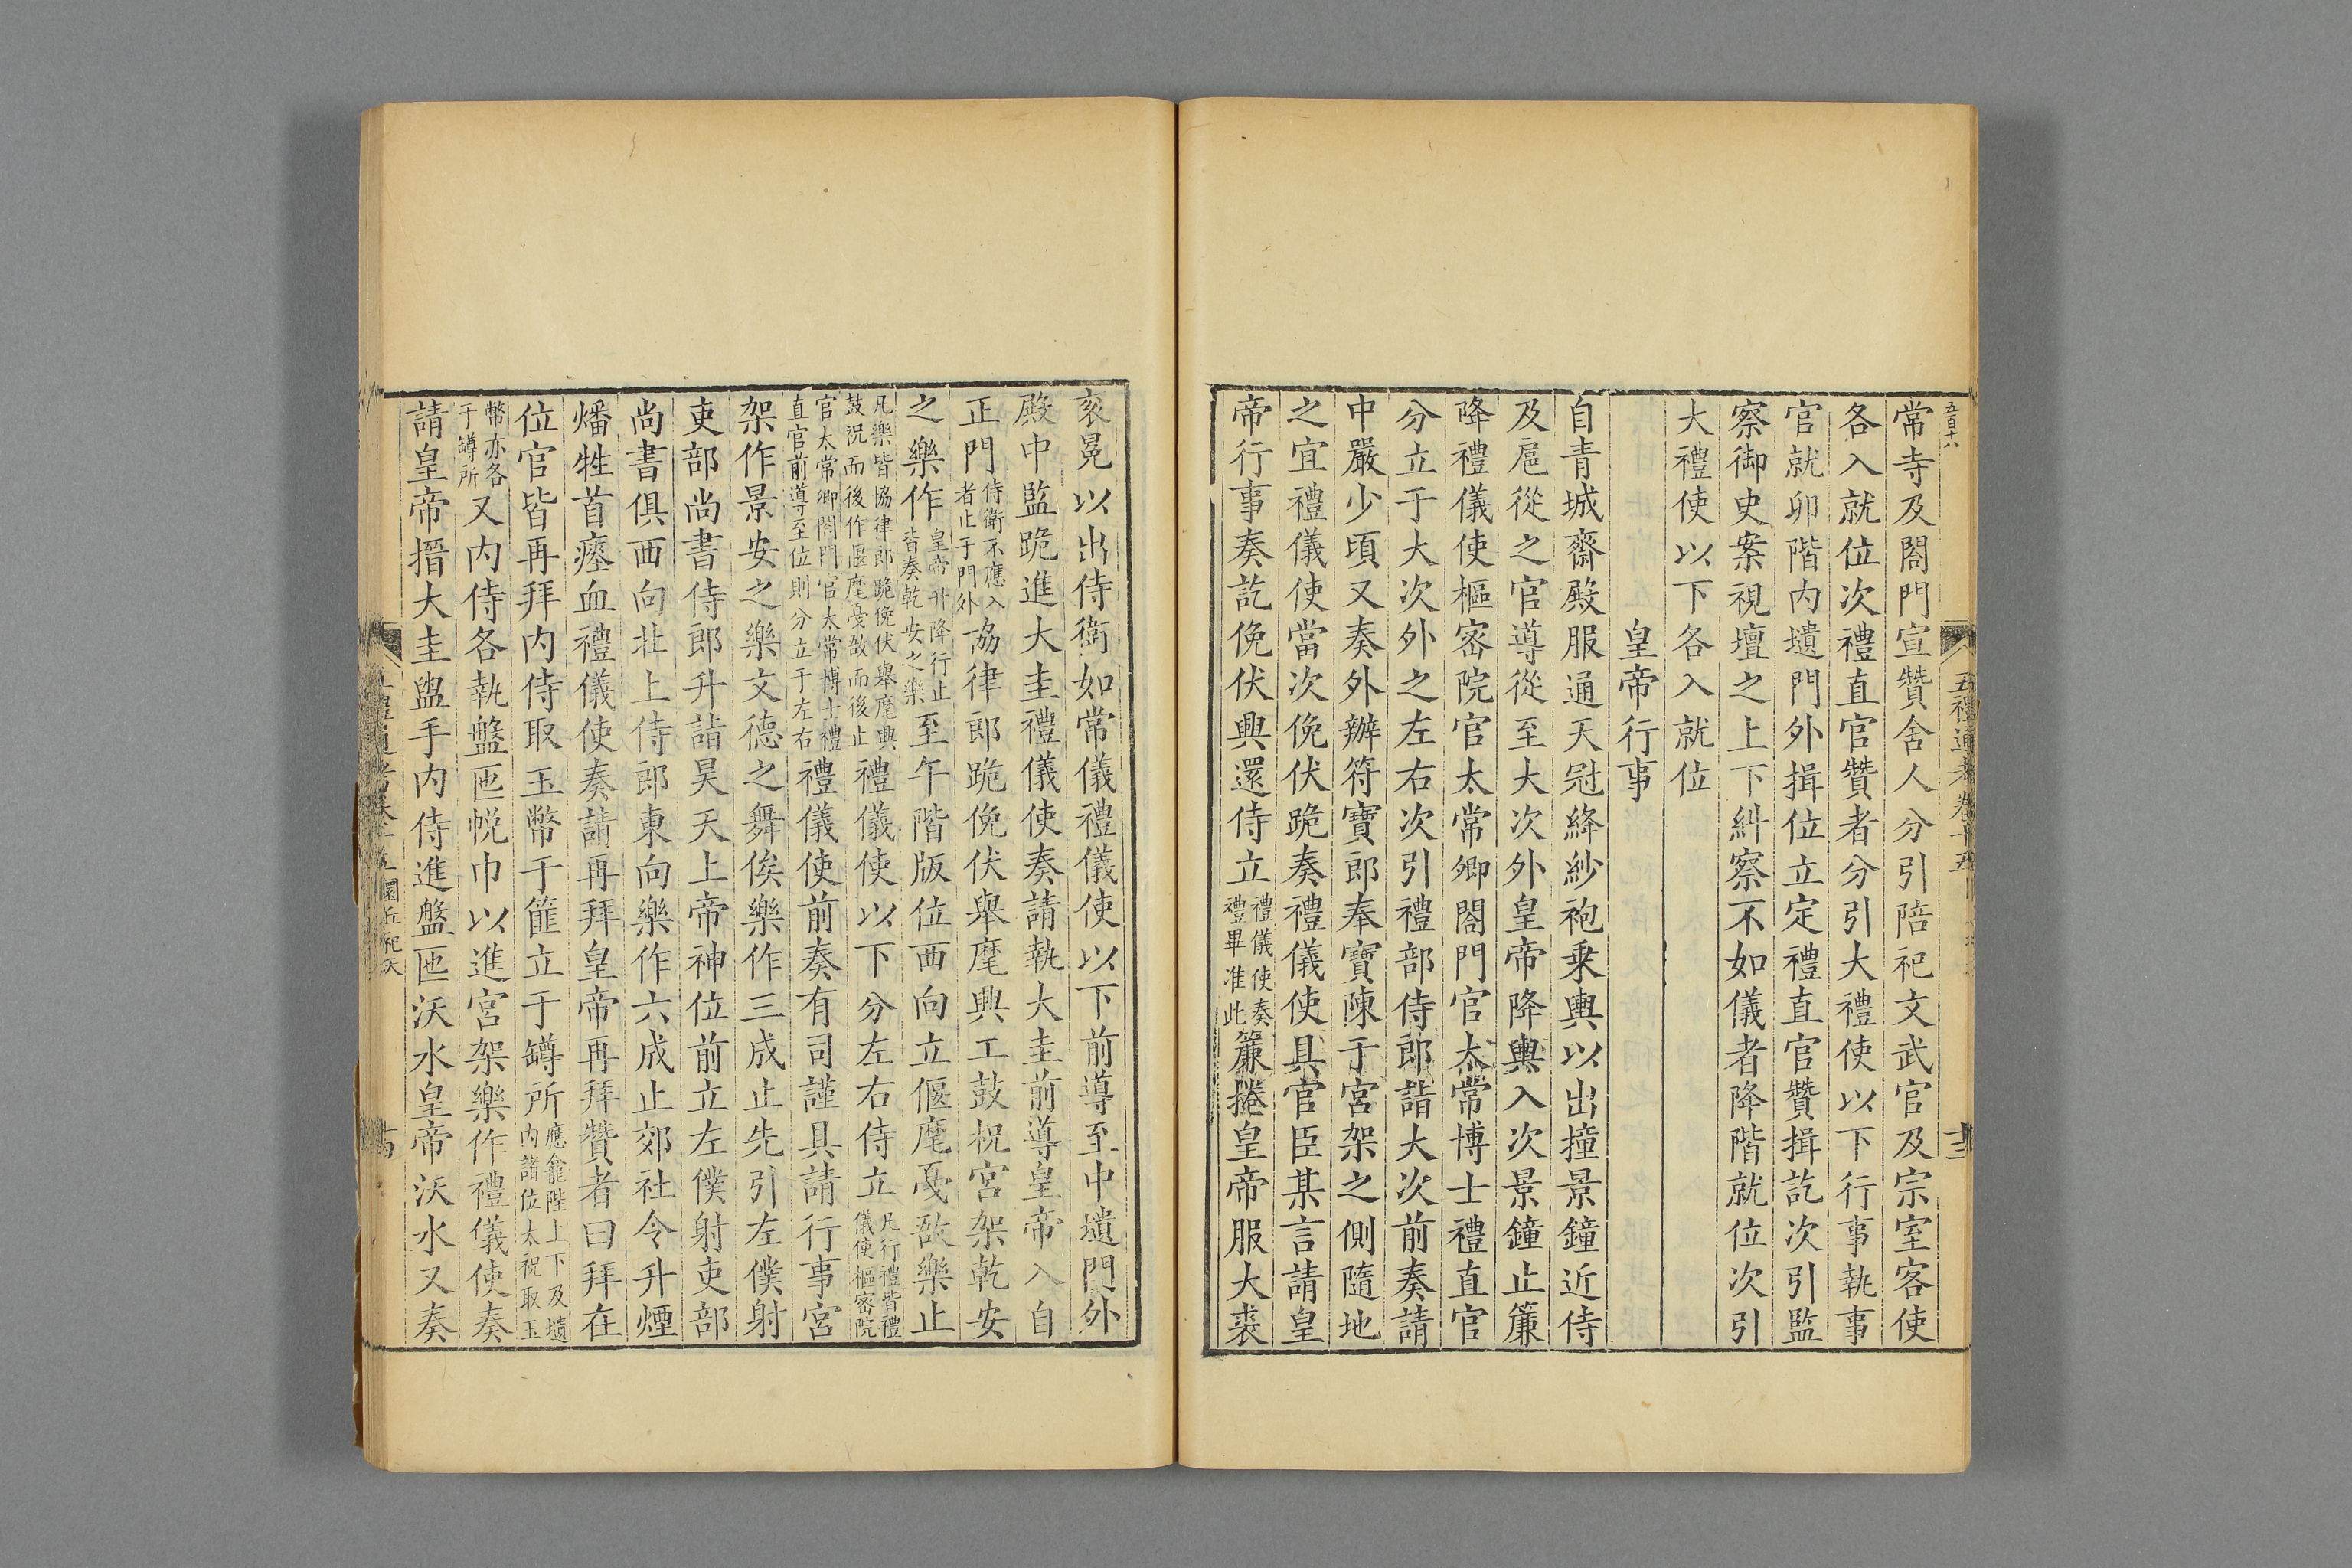 五百十八
五禮通考卷十五
常寺及閤門宣贊舍人分引陪祀文武官及宗室客使
各入就位次禮直官贊者分引大禮使以下行事執事
官就卯階內壝門外揖位立定禮直官贊揖訖次引監
察御史案視壇之上下糾察不如儀者降階就位次引
大禮使以下各入就位
皇帝行事
自青城齋殿服通天冠絳紗袍乗輿以出撞景鐘近侍
及扈從之官導從至大次外皇帝降輿入次景鐘止簾
降禮儀使樞密院官太常卿閤門官太常博士禮直官
分立于大次外之左右次引禮部侍郎詣大次前奏請
中嚴少頃又奏外辦符寶郎奉寶陳于宮架之側隨地
之宜禮儀使當次俛伏跪奏禮儀使具官臣某言請皇
帝行事奏訖俛伏興還侍立禮儀使奏禮畢准此簾捲皇帝服大裘
衮冕以出侍衛如常儀禮儀使以下前導至中壝門外
殿中監跪進大圭禮儀使奏請執大圭前導皇帝入自
正門侍衛不應入者止于門外協律郎跪俛伏舉麾興工鼓柷宮架乾安
之樂作皇帝升降行止皆奏乾安之樂至午階版位西向立偃麾戞敔樂止
凡樂皆協律郎跪俛伏舉麾興鼓柷而後作偃麾戞敔而後止禮儀使以下分左右侍立凡行禮皆禮儀使樞密院
官太常卿閤門官太常博士禮直官前導至位則分立于左右禮儀使前奏有司謹具請行事宮
架作景安之樂文德之舞俟樂作三成止先引左僕射
吏部尚書侍郎升詣昊天上帝神位前立左僕射吏部
尚書俱西向北上侍郎東向樂作六成止郊社令升煙
燔牲首瘞血禮儀使奏請再拜皇帝再拜贊者曰拜在
位官皆再拜內侍取玉幣于篚立于罇所應龕陛上下及壝內諸位太祝取玉
幣亦各于罇所又內侍各執盤匜帨巾以進宮架樂作禮儀使奏
請皇帝搢大圭盥手內侍進盤匜沃水皇帝沃水又奏
圜丘祀天